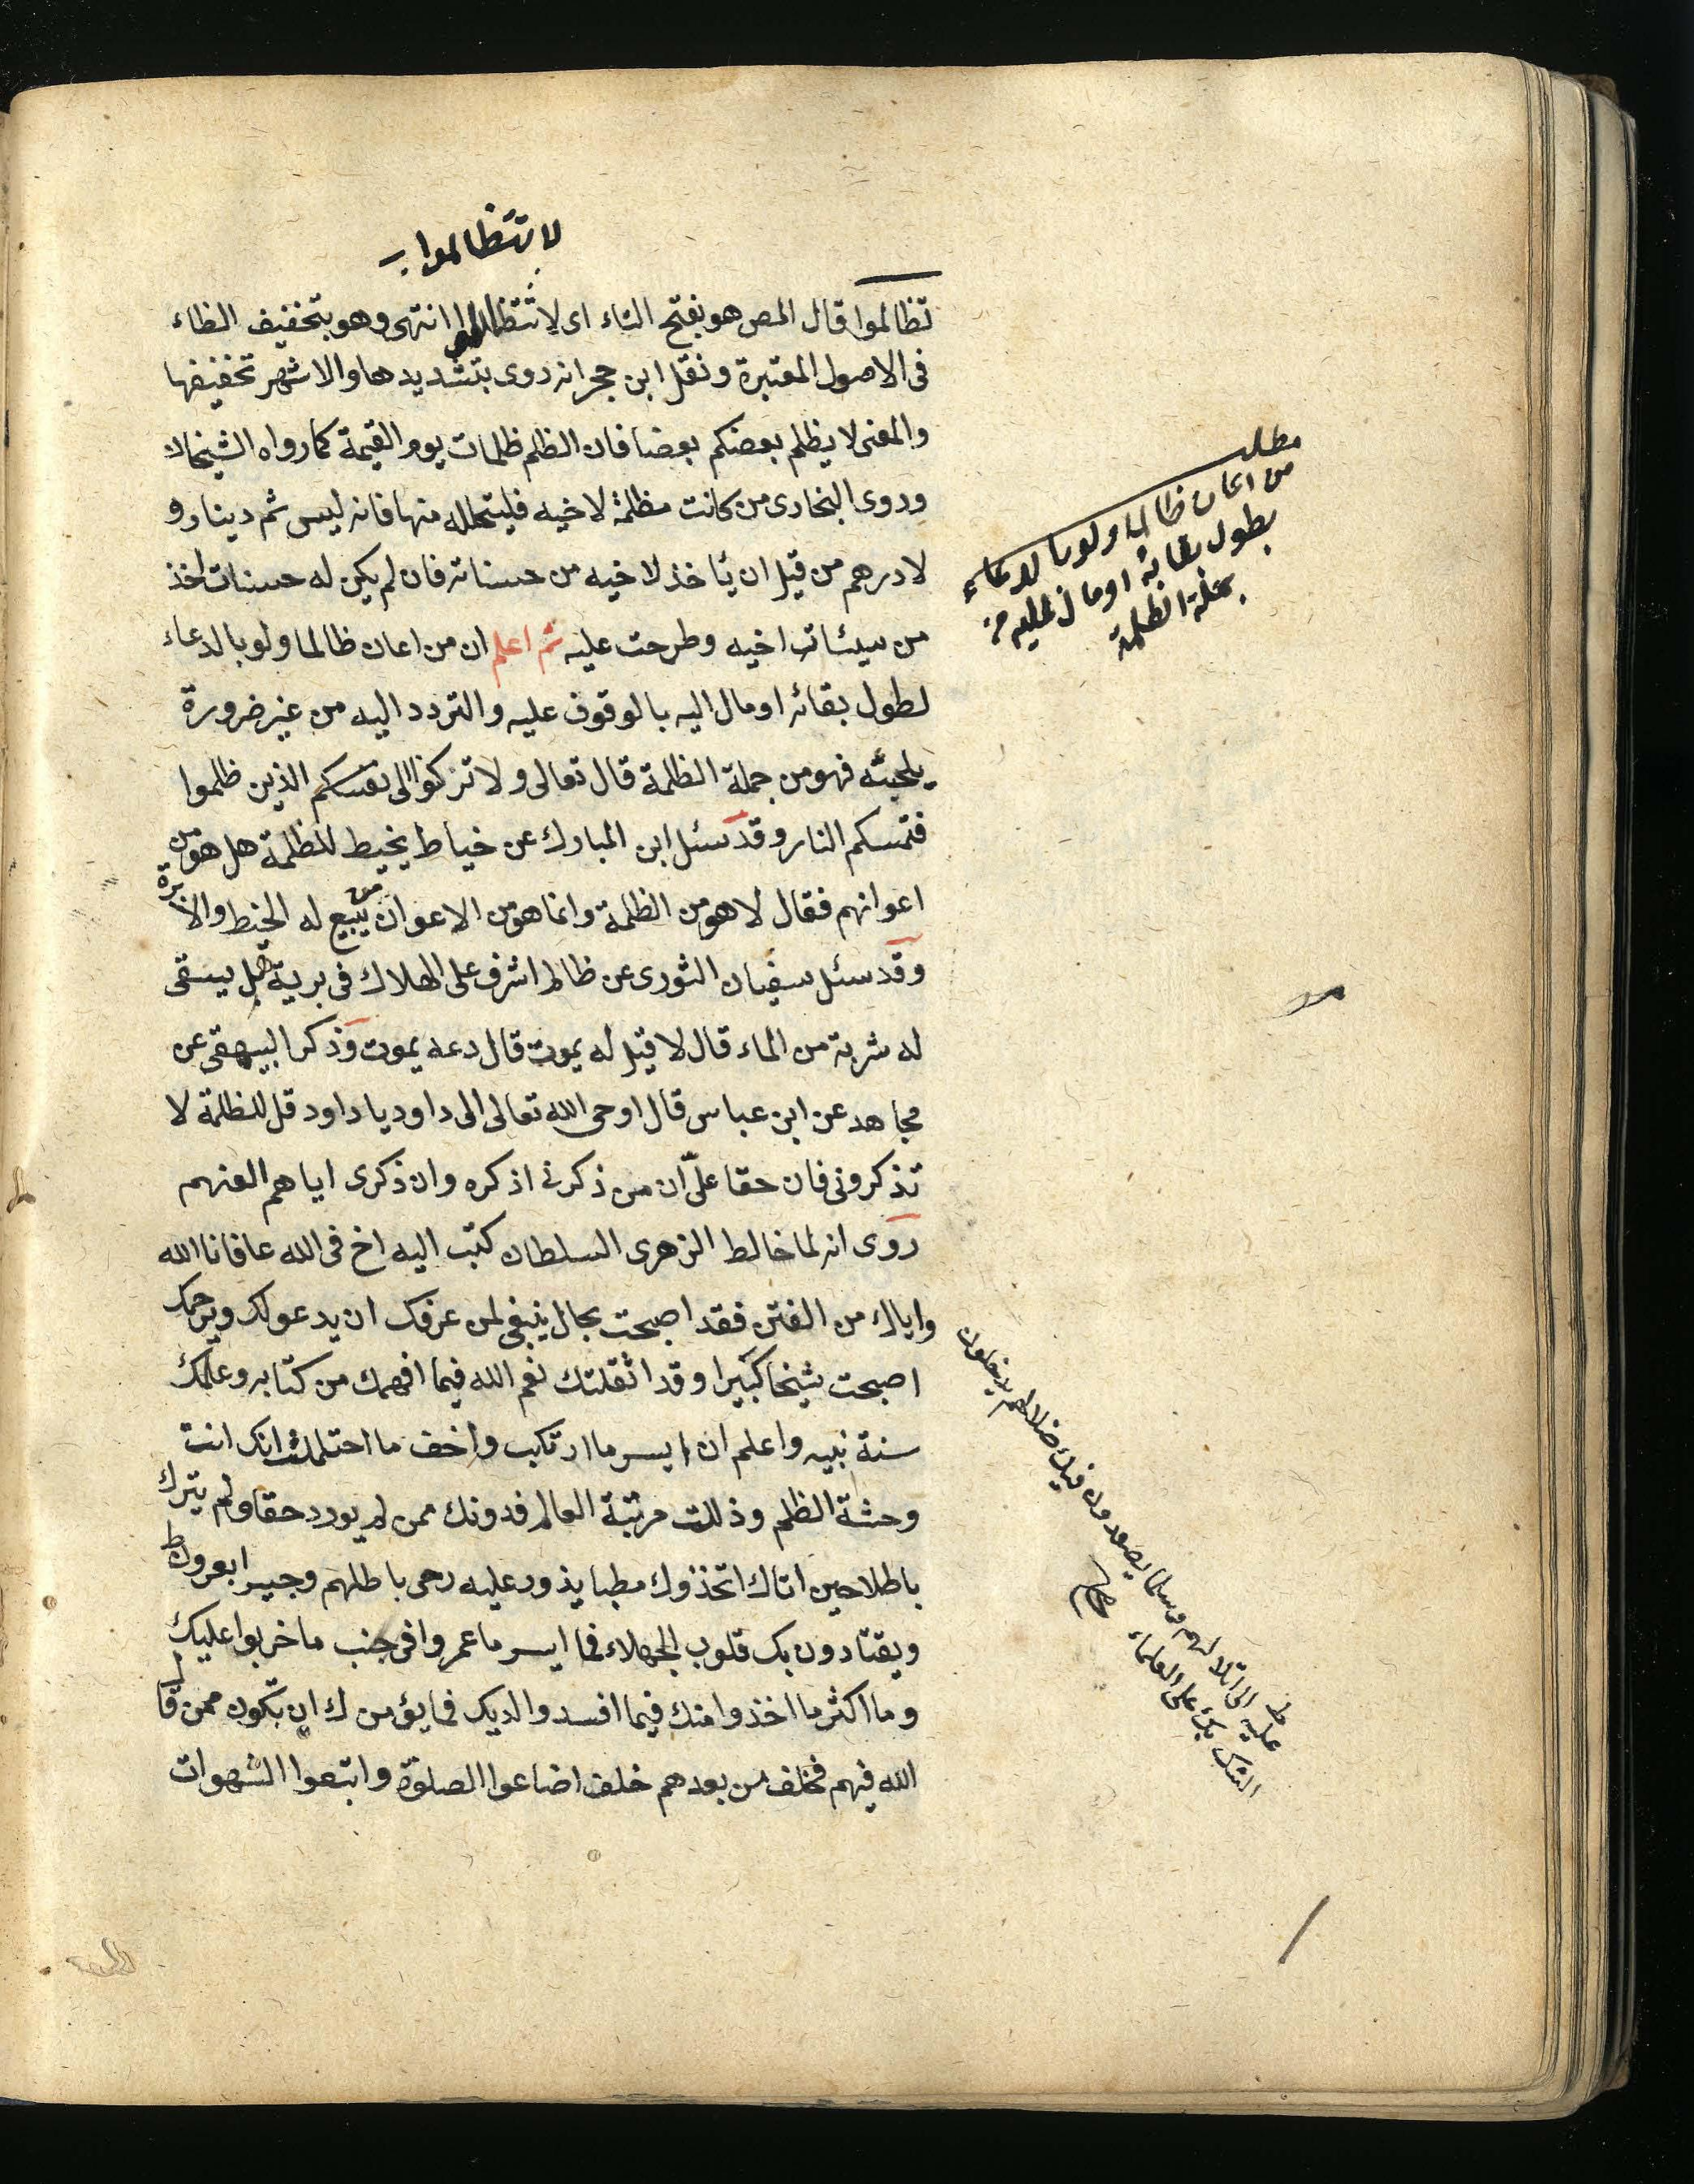 لا تتظالموا
تظالموا قال المص هو بفتح التاء اى لا تتظالموا انتهى وهو بتخفيف الظاء
فى الاصول المعتبرة ونقل ابن حجر انه روى بتشديدها والاشهر تخفيفها
والمعنى لا يظلم بعضكم بعضا فان الظلم ظلمات يوم القيمة كما رواه الشيخان
وروى البخارى من كانت مظلمة لاخيه فليتحلله منها فانه ليس ثم دينار و
لا درهم من قبل ان يأخذ لاخيه من حسناته فان لم يكن له حسنات اخذ
من سيئات اخيه وطرحت عليه ثم اعلم ان من اعان ظالما ولو بالدعاء
لطول بقائه او مال اليه بالوقوف عليه والتردد اليه من غير ضرورة
يلجئه فهو من جملة الظلمة قال تعالى ولا تركنوا الى الذين ظلموا
فتمسكم النار وقد سئل ابن المبارك عن خياط يخيط للظلمة هل هو من
اعوانهم فقال لا هو من الظلمة وانما هو من الاعوان من يبيع له الخيط والابرة
وقد سئل سفيان الثورى عن ظالم اشرف على الهلاك فى برية هل يسقى
له شربة من الماء قال لا قيل له يموت قال دعه يموت وذكر البيهقى عن
مجاهد عن ابن عباس قال اوحى الله تعالى الى داود يا داود قل للظلمة لا
تذكرونى فان حقا علىّ ان من ذكرنى اذكره وان ذكرى اياهم العنهم
روى انه لما خالط الزهرى السلطان كتب اليه اخ فى الله عافانا الله
واياك من الفتن فقد اصبحت بحال ينبغى لمن عرفك ان يدعو لك ويرحمك
اصبحت شيخا كبيرا وقد اثقلتك نعم الله فيما افهمك من كتابه وعلمك
سنة نبيه واعلم ان ايسر ما ارتكب واخف ما احتملت انك انت
وحشة الظلم وذللت مرتبة العالم فدونك ممن لم يورد حقا ولم يترك
باطلا حين اتاك اتخذوك مطبا يذور عليه رحى باطلهم وجسرا بعروك
ويقتادون بك قلوب الجهلاء فما ايسر ما عمروا فى جنب ما خربوا عليك
وما اكثر ما اخذوا منك فيما افسدوا لديك فما يؤمن لك ان تكون ممن قال
الله فيهم فخلف من بعدهم خلف اضاعوا الصلوة واتبعوا الشهوات
مطلب
من اعان ظالما ولو بالدعاء
بطول بقائه او مال اليه من
جملة الظلمة
عليه الى بلائهم وسلما يصعدون فيك ضلالهم يدخلون
الشك بك على العلماء